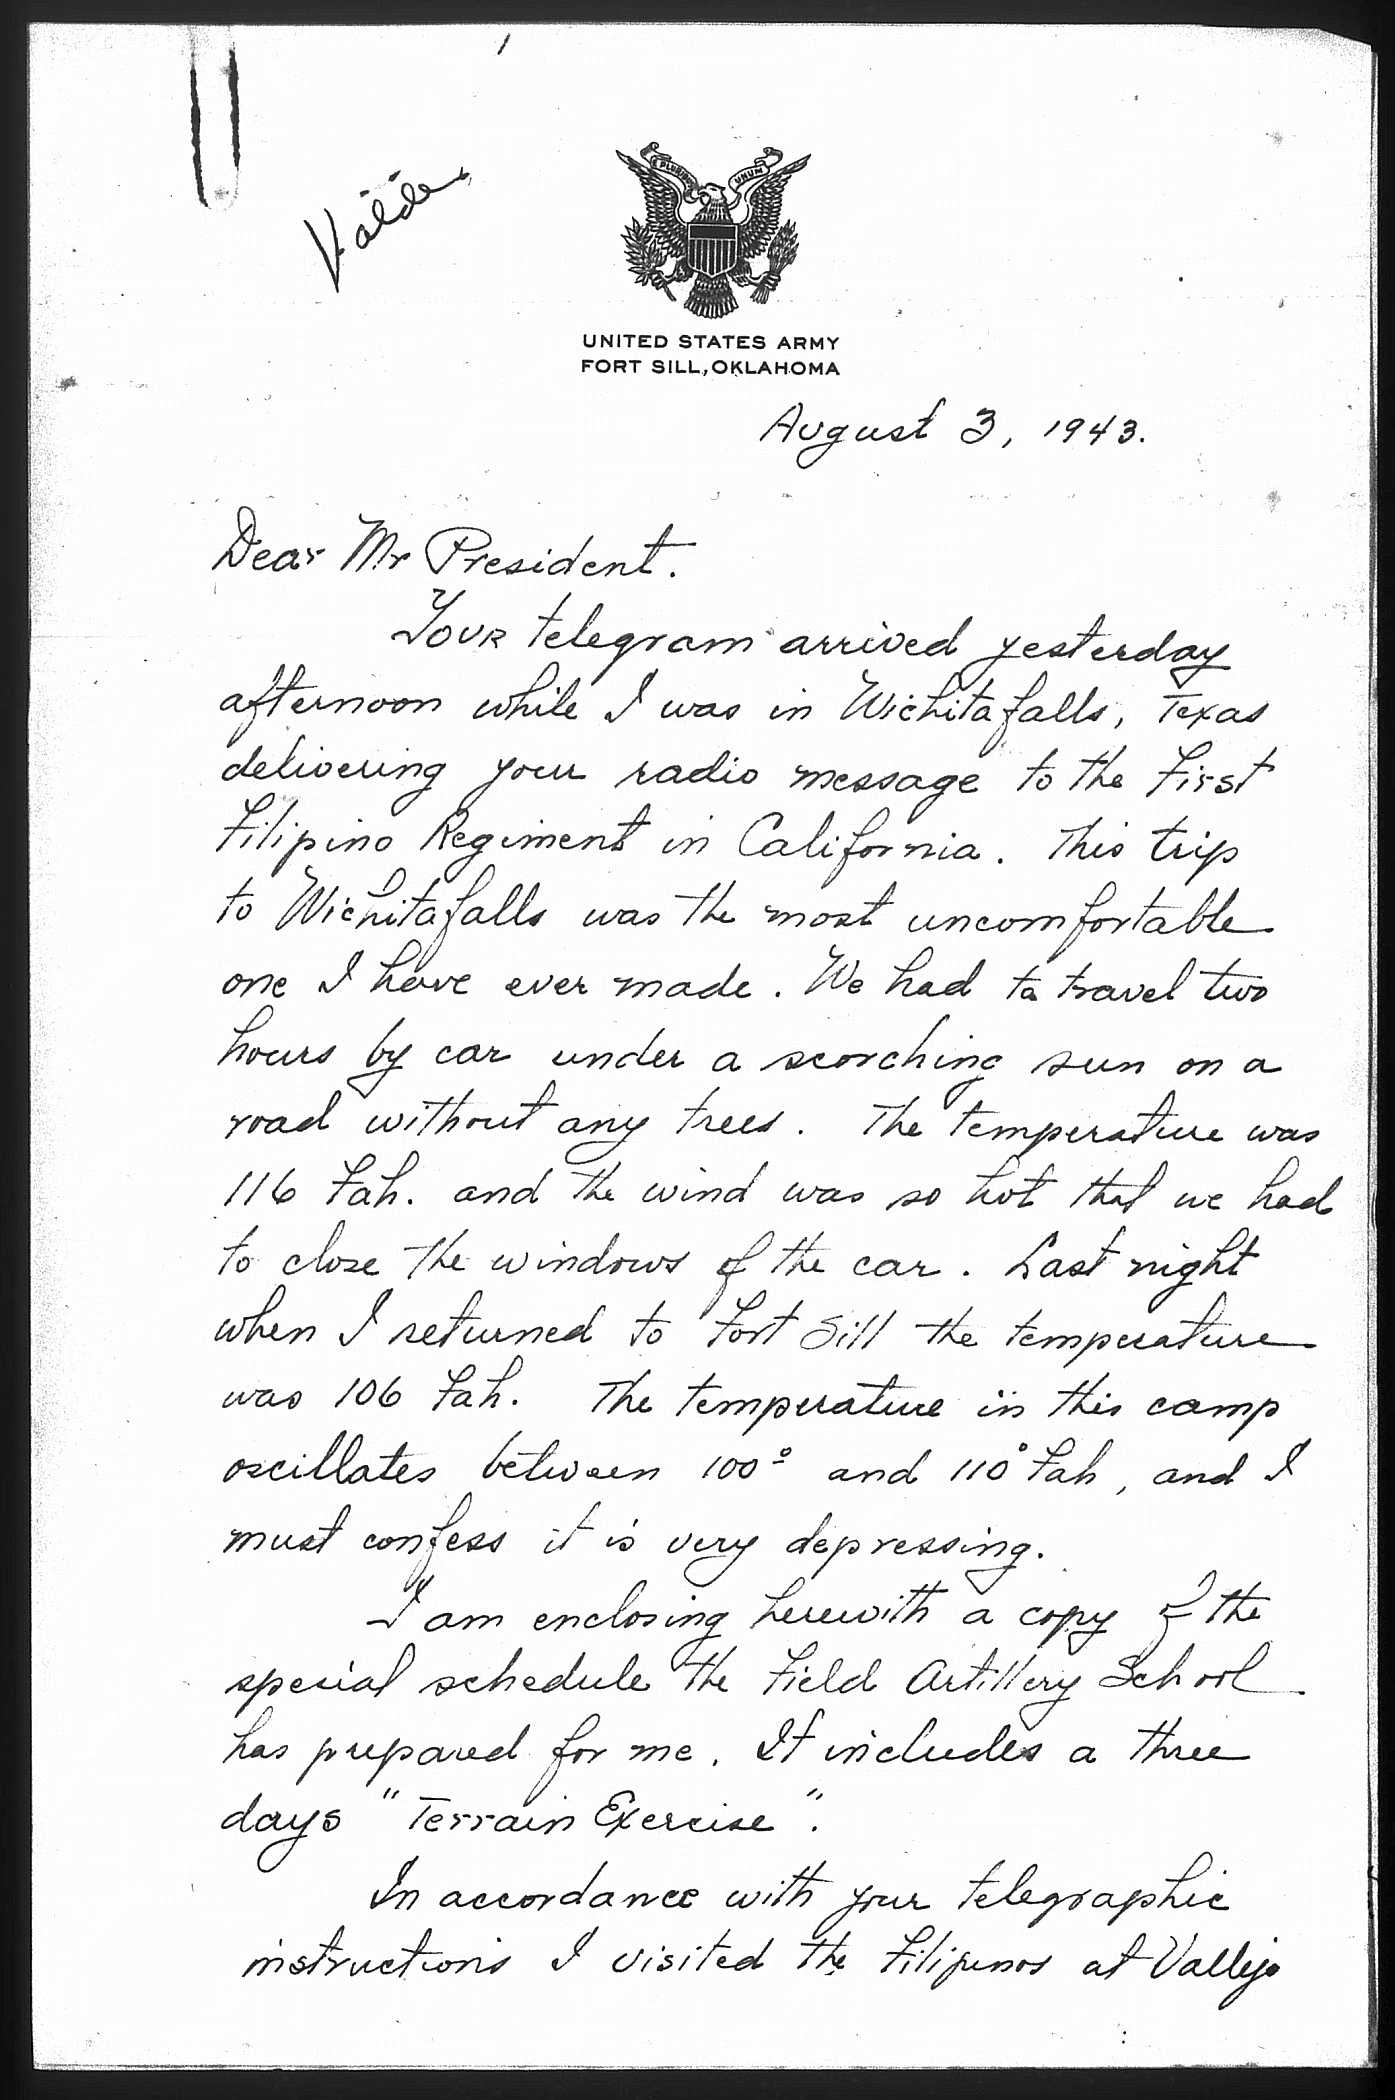 Valdes
E PLURIBUS UNUM
UNITED STATES ARMY
FORT SILL, OKLAHOMA
August 3, 1943.
Dear Mr President.
Your telegram arrived yesterday
afternoon while I was in Wichitafalls, Texas
delivering your radio message to the First
Filipino Regiment in California. This trip
to Wichitafalls was the most uncomfortable
one I have ever made. We had to travel two
hours by car under a scorching sun on a
road without any trees. The temperature was
116 Fah. and the wind was so hot that we had
to close the windows of the car. Last night
when I returned to Fort Sill the temperature
was 106 Fah. The temperature in this camp
oscillates between 100° and 110° Fah, and I
must confess it is very depressing.
I am enclosing herewith a copy of the
special schedule the Field Artillery School
has prepared for me. It includes a three
days "Terrain Exercise".
In accordance with your telegraphic
instructions I visited the Filipinos at Vallejo